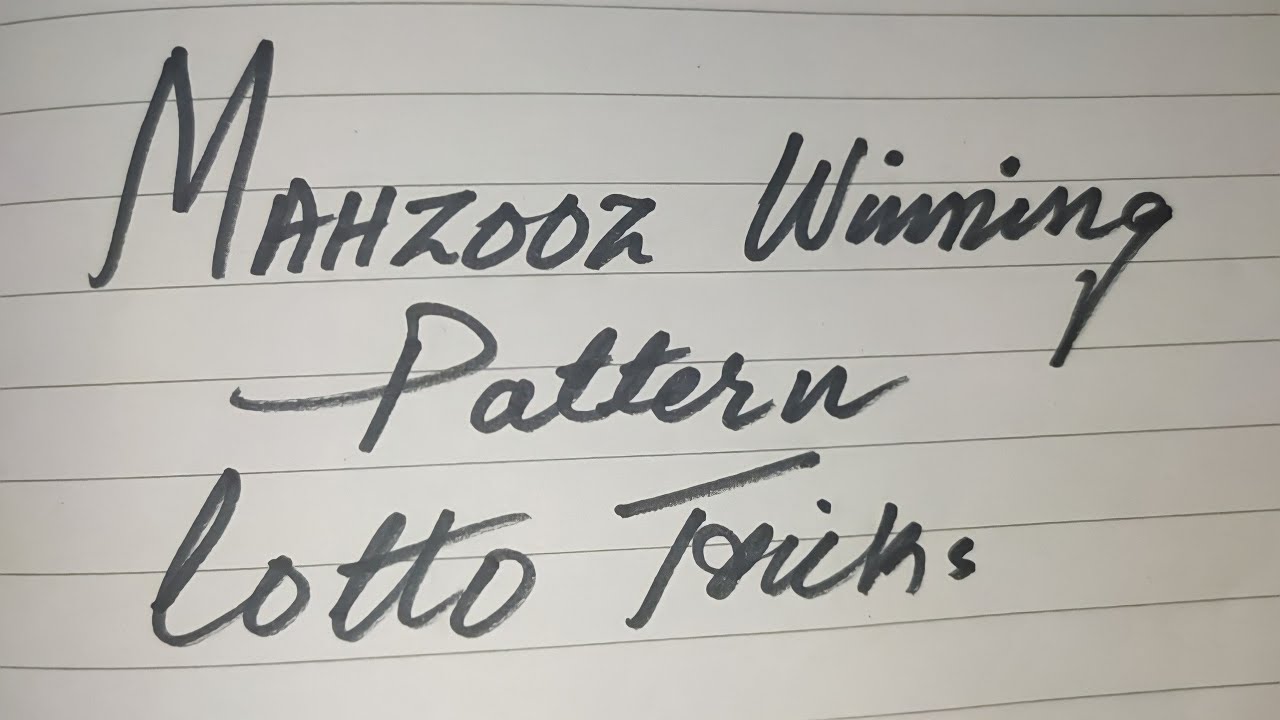 MAHZOOZ Winning
Pattern
Lotto Tricks